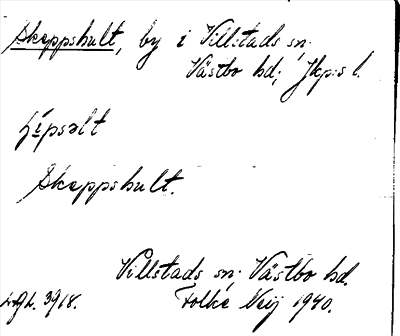 Skeppshult, by i Villstads sn.
Västbo hd; Jkp:s l.
Skeppshult.
Villstads sn. Västbo hd.
3918. Folke Neij 1940.